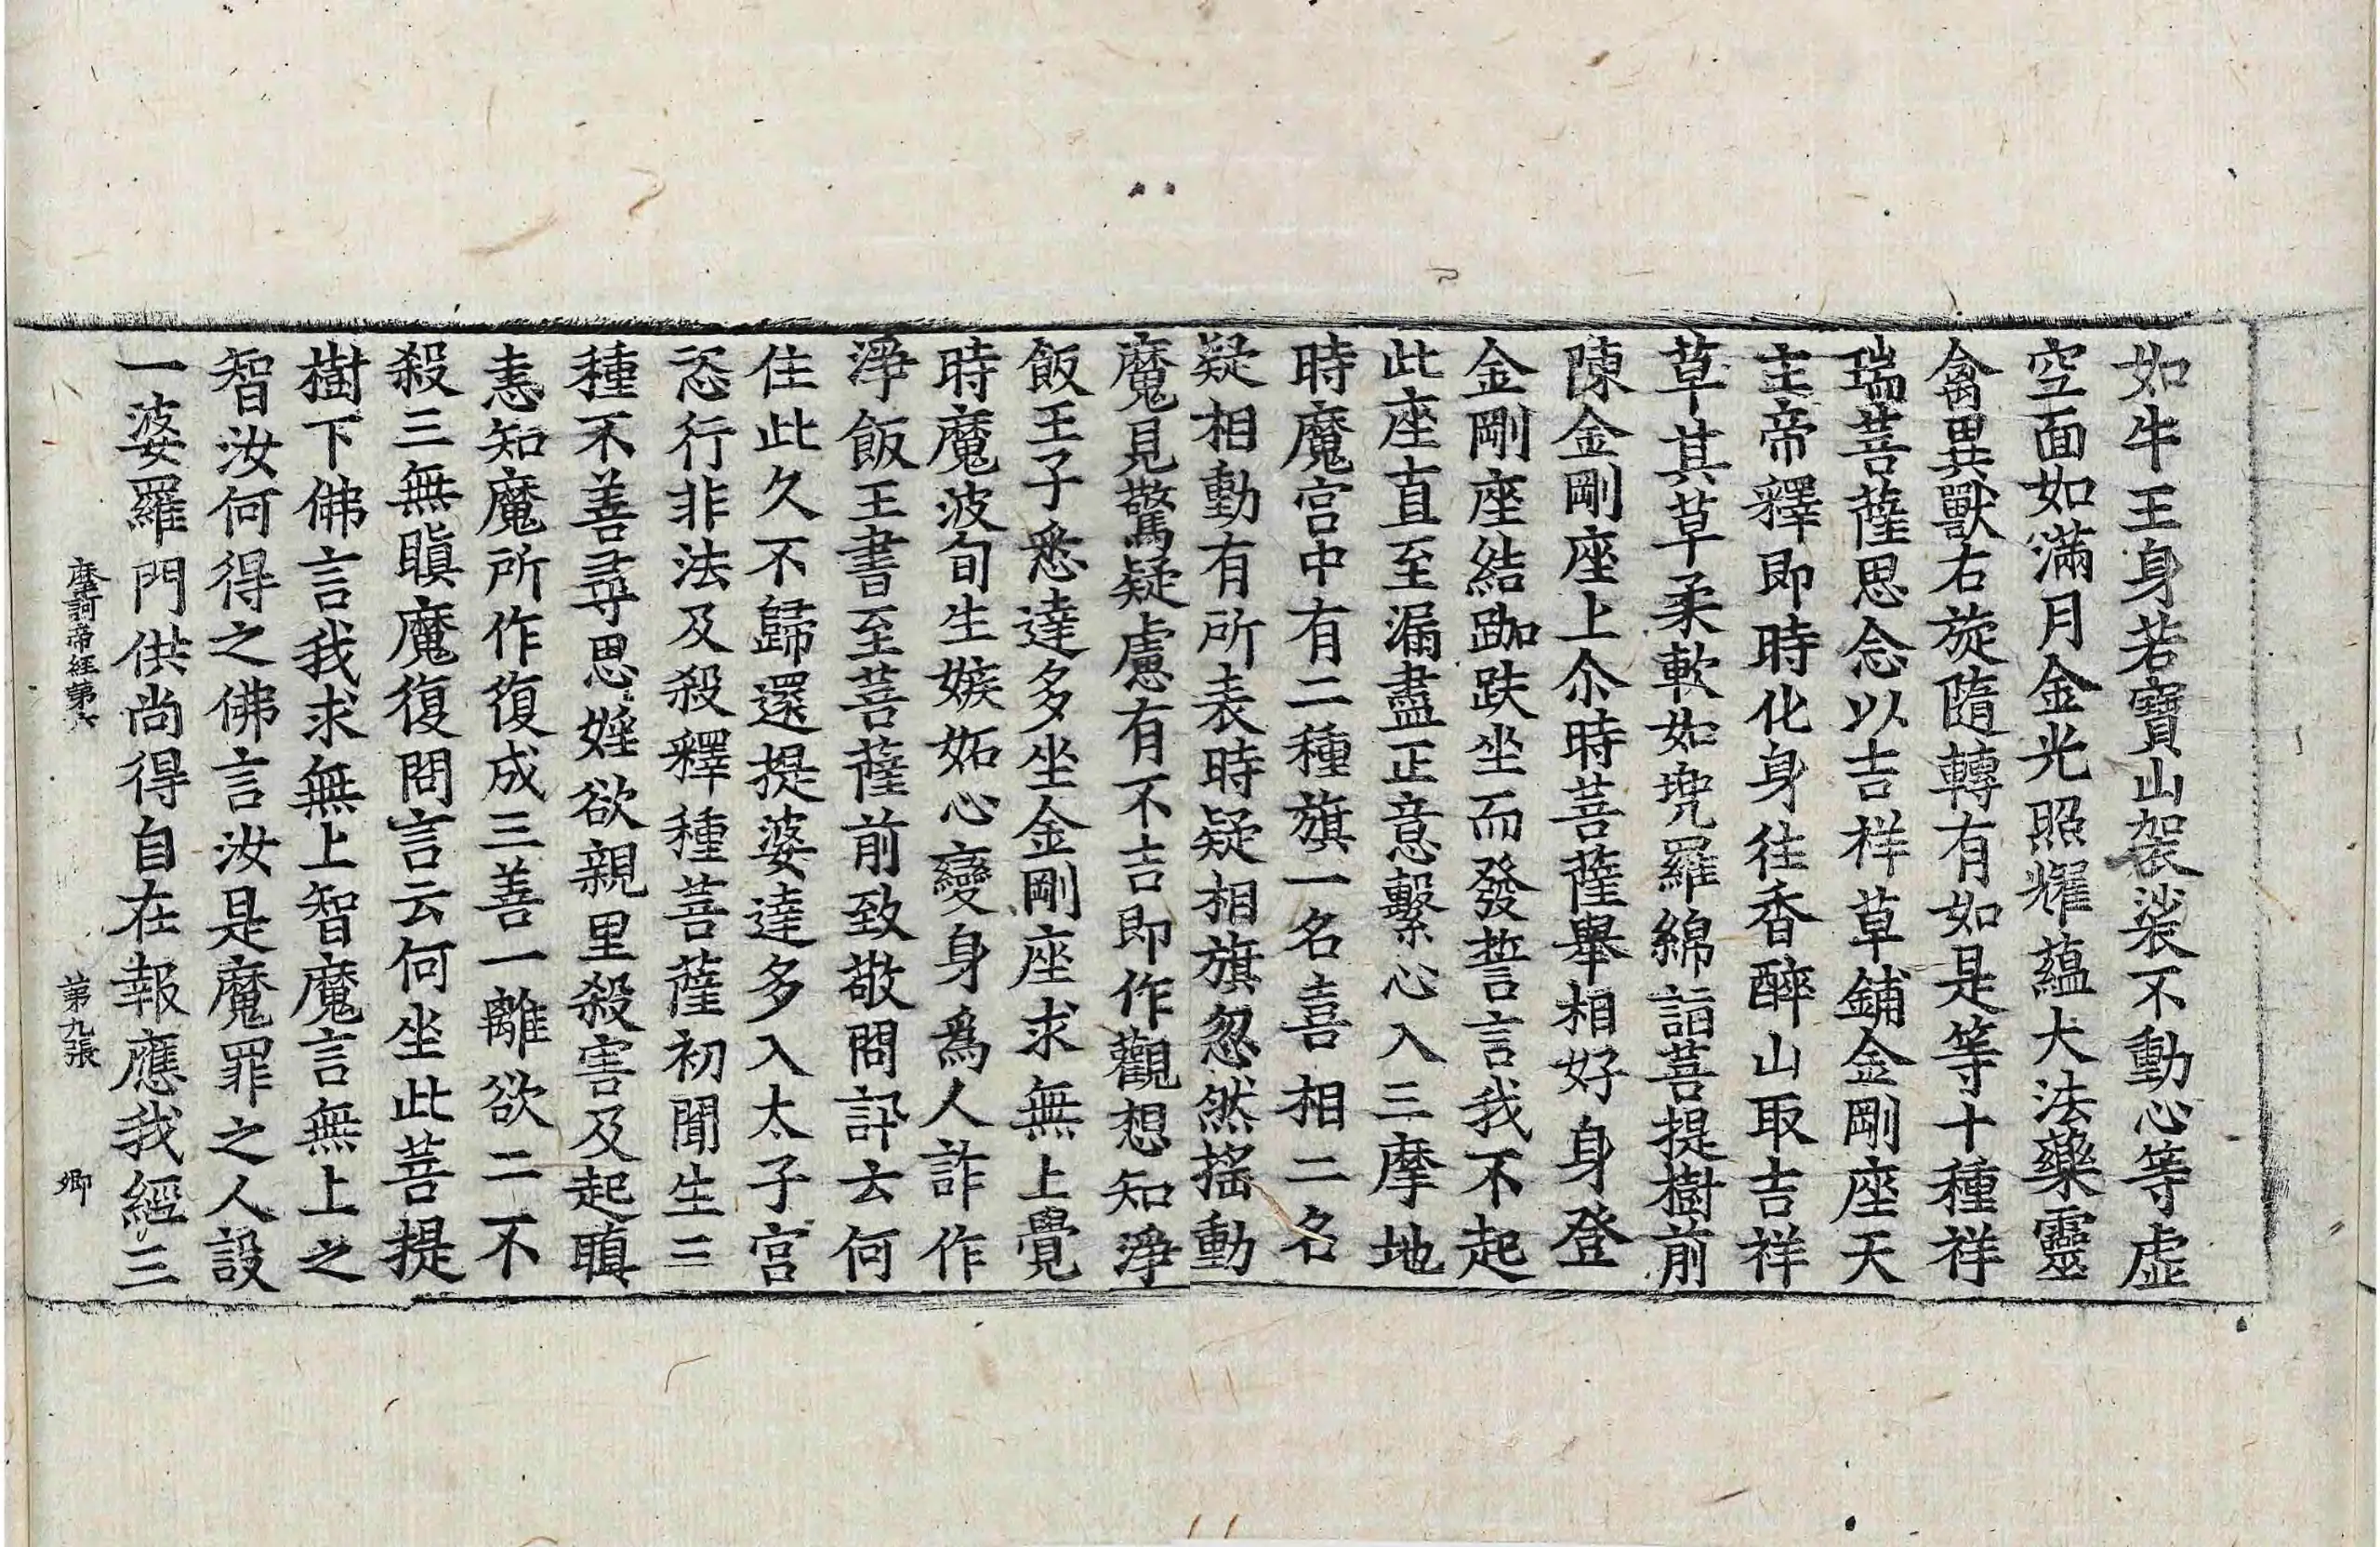 如牛王身若寶山袈裟不動心等虛
空面如滿月金光照耀蘊大法藥靈
禽異獸右旋隨轉有如是等十種祥
瑞菩薩思念以吉祥草鋪金剛座天
主帝釋即時化身往香醉山取吉祥
草其草柔軟如兠羅綿詣菩提樹前
陳金剛座上尒時菩薩舉相好身登
金剛座結跏趺坐而發誓言我不起
此座直至漏盡正意繫心入三摩地
時魔宮中有二種旗一名喜相二名
疑相動有所表時疑相旗忽然搖動
魔見驚疑慮有不吉即作觀想知淨
飯王子悉達多坐金剛座求無上覺
時魔波旬生嫉妬心變身爲人詐作
淨飯王書至菩薩前致敬問訊云何
住此久不歸還提婆達多入太子宮
恣行非法及殺釋種菩薩初聞生三
種不善尋思婬欲親里殺害及起瞋
恚知魔所作復成三善一離欲二不
殺三無瞋魔復問言云何坐此菩提
樹下佛言我求無上智魔言無上之
智汝何得之佛言汝是魔罪之人設
一婆羅門供尚得自在報應我經三
摩訶帝經第六 第九張 卿